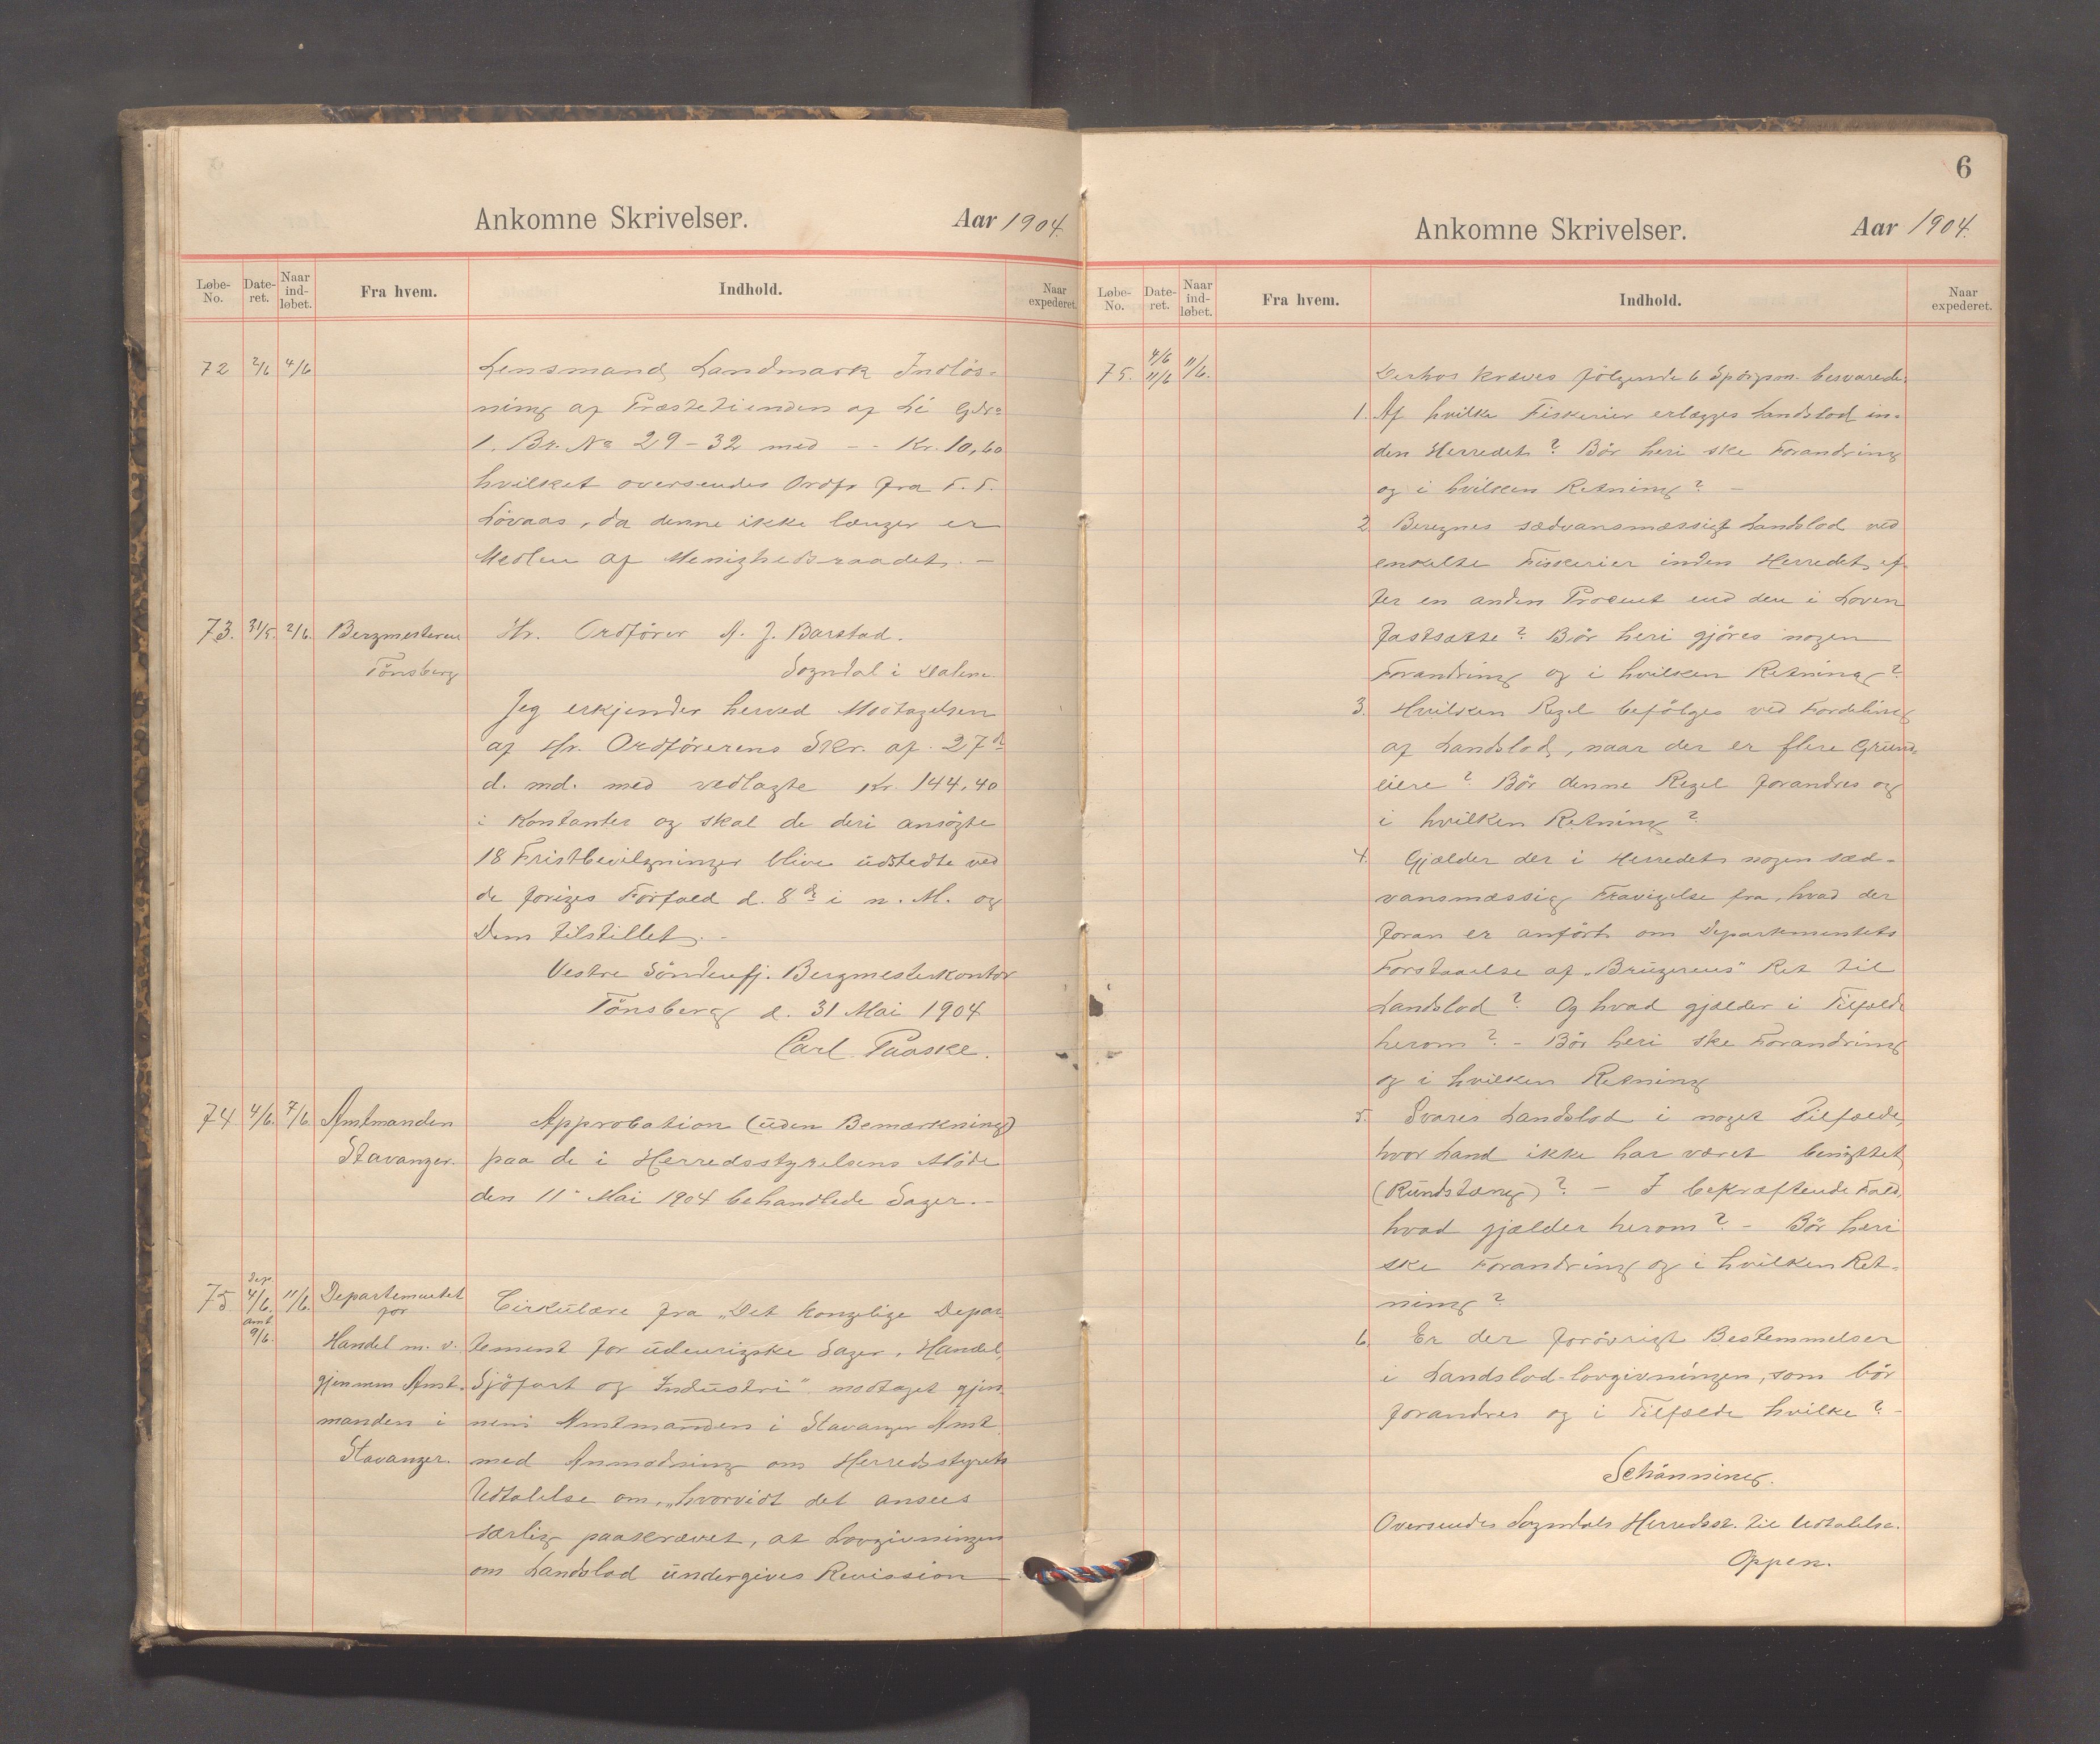 Ankomne Skrivelser. Aar 1904.
Løbe-No. Date-ret. Naar ind-løbet. Fra hvem. Indhold. Naar expederet.
72 2/6 4/6 Lensmand Landmark Indløs-
ning af Præstetienden af Li Gdr.
1. Br. No 29-32 med -- Kr. 10,60
hvilket oversendes Ordf. fra T. T.
Lövaas, da denne ikke længer er
Medlem af Menighedsraadet. -
73. 31/5. 2/6. Bergmesteren Hr. Ordförer A. J. Barstad.
Tönsberg Sogndal i Dalene.
Jeg erkjender herved Modtagelsen
af Hr. Ordförerens Skr. af. 27de
d. md. med vedlagte Kr. 144,40
i Kontanter og skal de deri ansögte
18 Fristbevilgninger blive udstedte ved
de foriges Forfald d. 8de i n. M. og
Dem tilstillet. -
Vestre Söndenfj. Bergmesterkontor
Tönsberg d. 31 Mai 1904
Carl Paaske.
74 4/6. 7/6. Amtmanden Approbation (uden Bemærkning)
Stavanger. paa de i Herredsstyrelsens Möde
den 11te Mai 1904 behandlede Sager. -
75. Dep. 4/6. Amt 9/6. 11/6. Departementet for Cirkulære fra „Det kongelige Depar-
Handel m. v. tement for udenrigske Sager, Handel,
gjennem Amt- Sjöfart og Industri“ modtaget gjen-
manden i nem Amtmanden i Stavanger Amt
Stavanger. med Anmodning om Herredsstyrets
Udtalelse om, „hvorvidt det ansees
særlig paakrævet, at Lovgivningen
om Landslod undergives Revission
6
Ankomne Skrivelser. Aar 1904.
Løbe-No. Date-ret. Naar ind-løbet. Fra hvem. Indhold. Naar expederet.
75. 4/6 11/6 11/6. Derhos kræves fölgende 6 Spörgsm. besvarede:
1. Af hvilke Fiskerier erlægges Landslod in-
den Herredet? Bör heri ske Forandring
og i hvilken Retning? -
2. Beregnes sædvansmæssigt Landslod ved
enkelte Fiskerier inden Herredet ef-
ter en anden Procent end den i Loven
fastsatte? Bör heri gjöres nogen
Forandring og i hvilken Retning?
3. Hvilken Regel befölges ved Fordeling
af Landslod, naar der er flere Grund-
eiere? Bör denne Regel forandres og
i hvilken Retning?
4. Gjælder der i Herredet nogen sæd-
vansmæssig Fravigelse fra, hvad der
foran er anfört om Departementets
Forstaaelse af „Brugerens“ Ret til
Landslod? Og hvad gjælder i Tilfælde
herom? - Bör heri ske Forandring
og i hvilken Retning
5. Svares Landslod i noget Tilfælde,
hvor Land ikke har været benyttet
(Rundstæng)? - I bekræftende Fald,
hvad gjælder herom? - Bör heri
ske Forandring og i hvilken Ret-
ning?
6. Er der forövrigt Bestemmelser
i Landslod-lovgivningen, som bör
forandres og i Tilfælde hvilke? -
Schönning.
Oversendes Sogndals Herredsst. til Udtalelse.
Oppen.